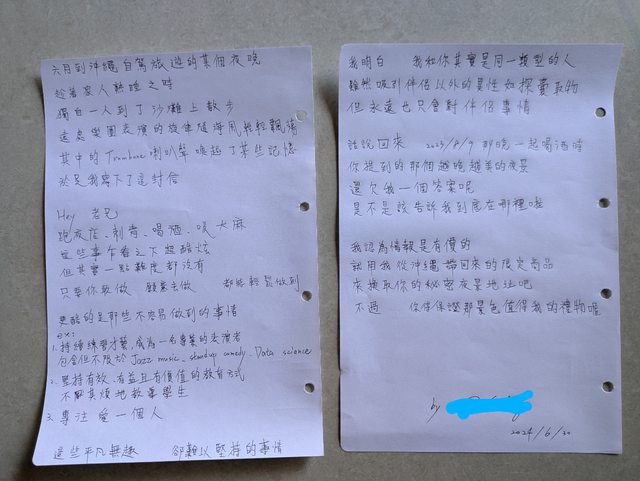 六月到沖繩自駕旅遊的某個夜晚
趁著家人熟睡之時
獨自一人到了沙灘上散步
遠處樂團表演的旋律隨海風輕輕飄揚
其中的Trombone喇叭聲喚起了某些記憶
於是我寫下了這封信
Hey 老兄
跑夜店、刺青、喝酒、吸大麻
這些事乍看之下超酷炫
但其實一點難度都沒有
只要你敢做 願意去做 都能輕易做到
更酷的是那些不容易做到的事情
ex:
1. 持續練習才藝,成為一名專業的表演者
包含但不限於Jazz music、standup comedy、Data science
2. 堅持有效、有益且有價值的教育方式
不厭其煩地教導學生
3. 專注愛一個人
這些平凡無趣 卻難以堅持的事情
我明白 我和你其實是同一類型的人
雖然吸引伴侶以外的異性如探囊取物
但永遠也只會對伴侶專情
話說回來 2023/8/9 那晚一起喝酒時
你提到的那個越晚越美的夜景
還欠我一個答案呢
是不是該告訴我到底在哪裡啦
我認為情報是有價的
就用我從沖繩帶回來的限定商品
來換取你的秘密夜景地址吧
不過 你得保證那景色值得我的禮物喔
by
2024/6/20